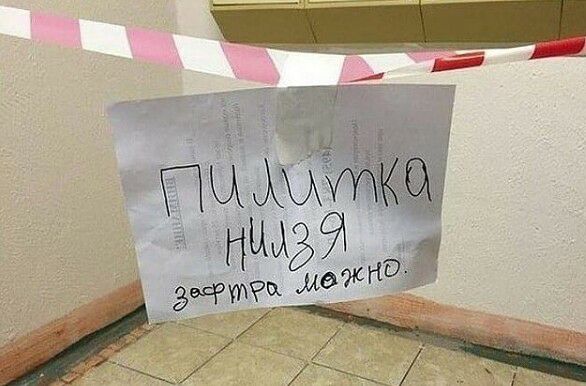 ПИЛИТКА
НИЛЗЯ
зафтра мажно.